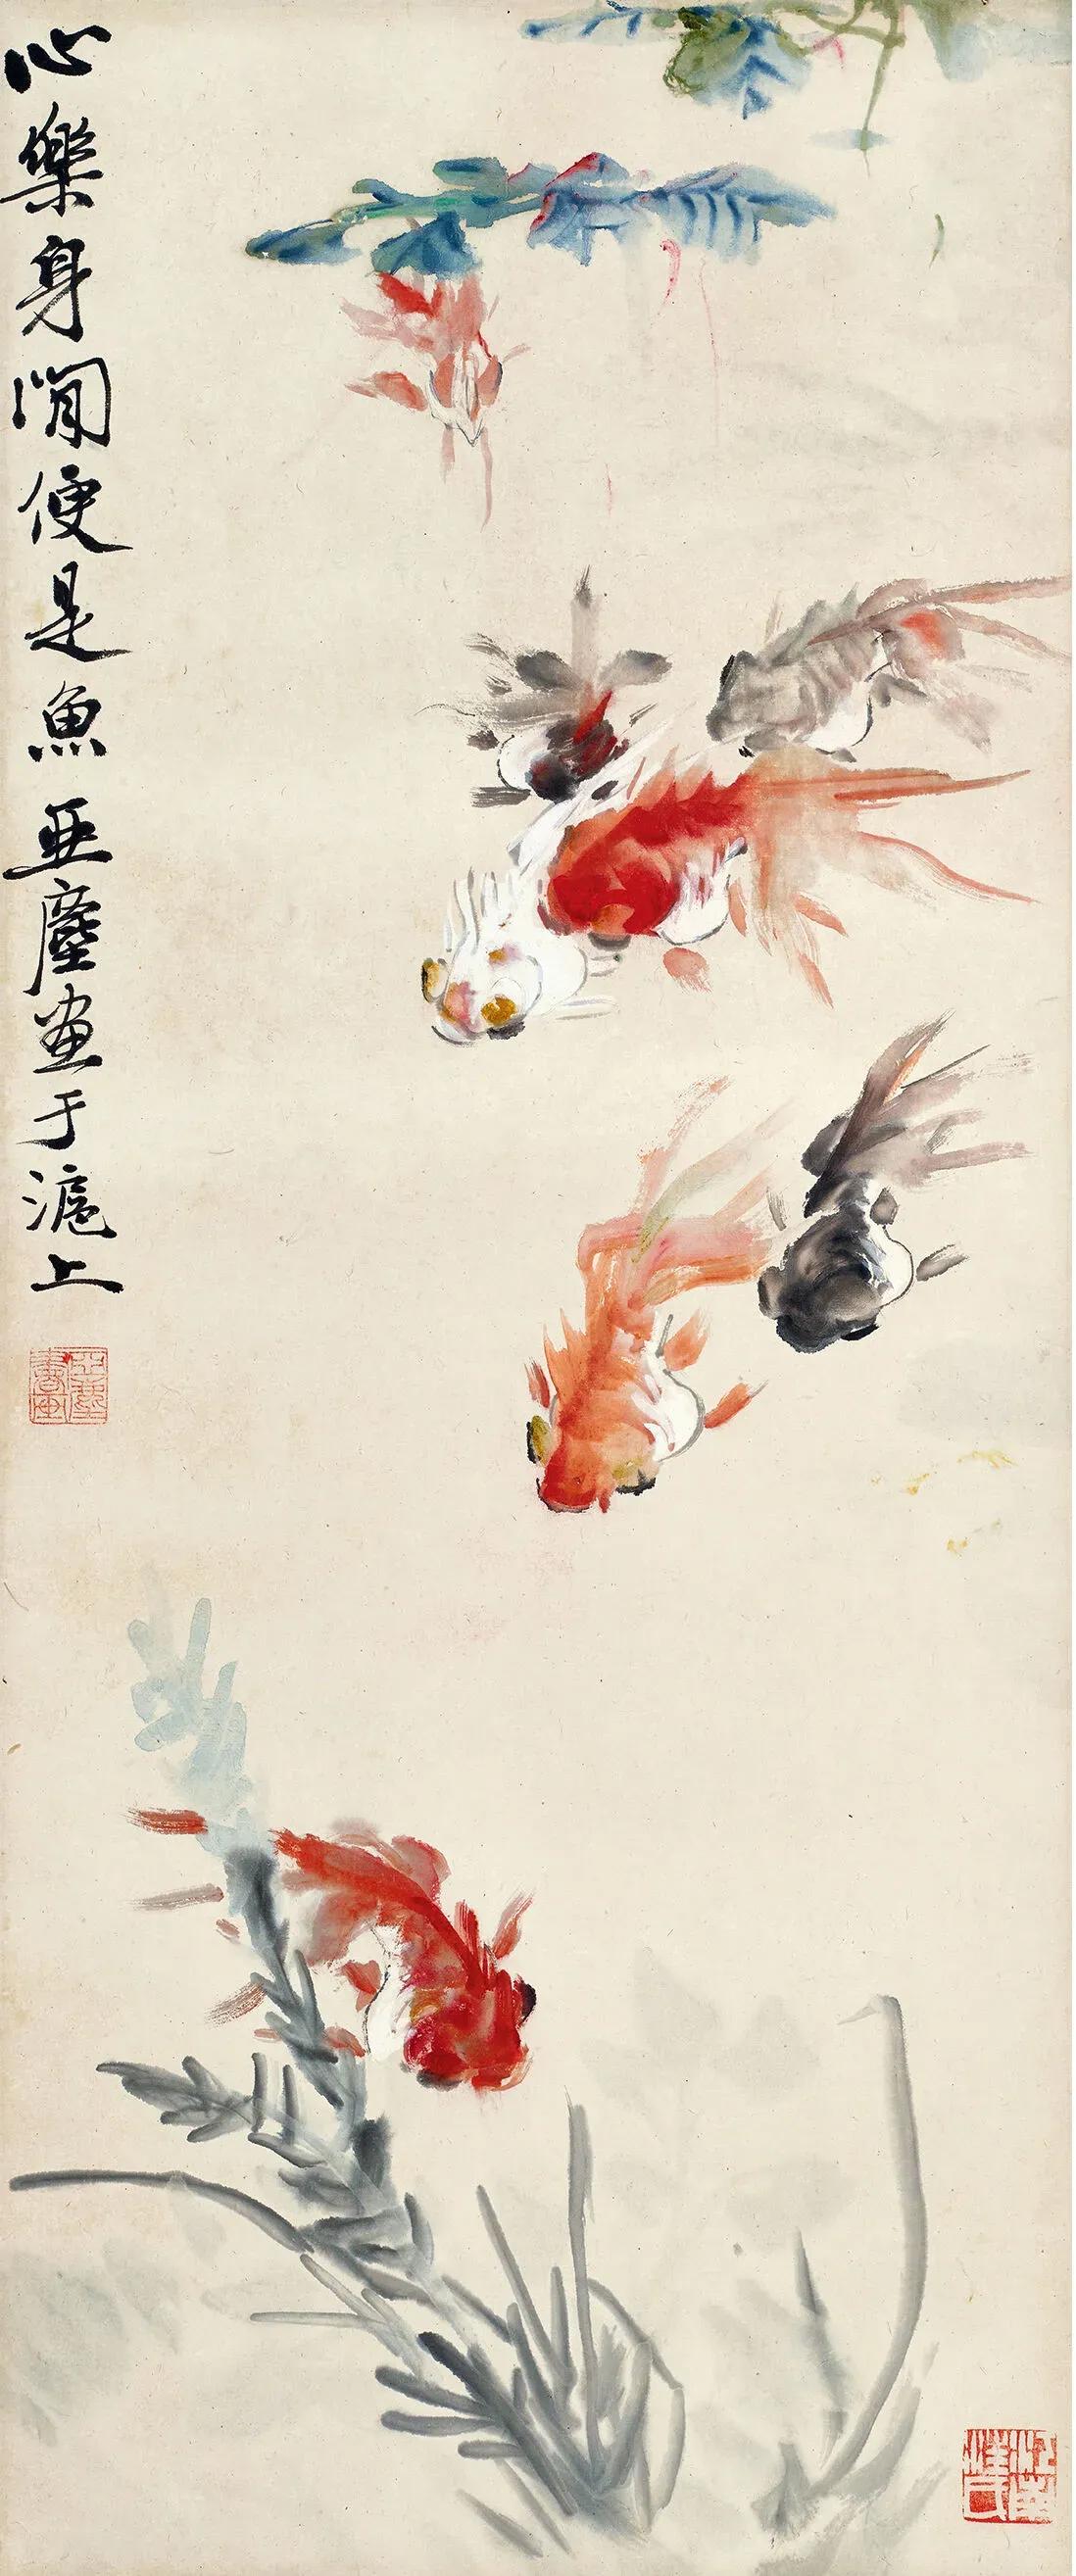 心樂身閒便是魚 亞塵畫于滬上